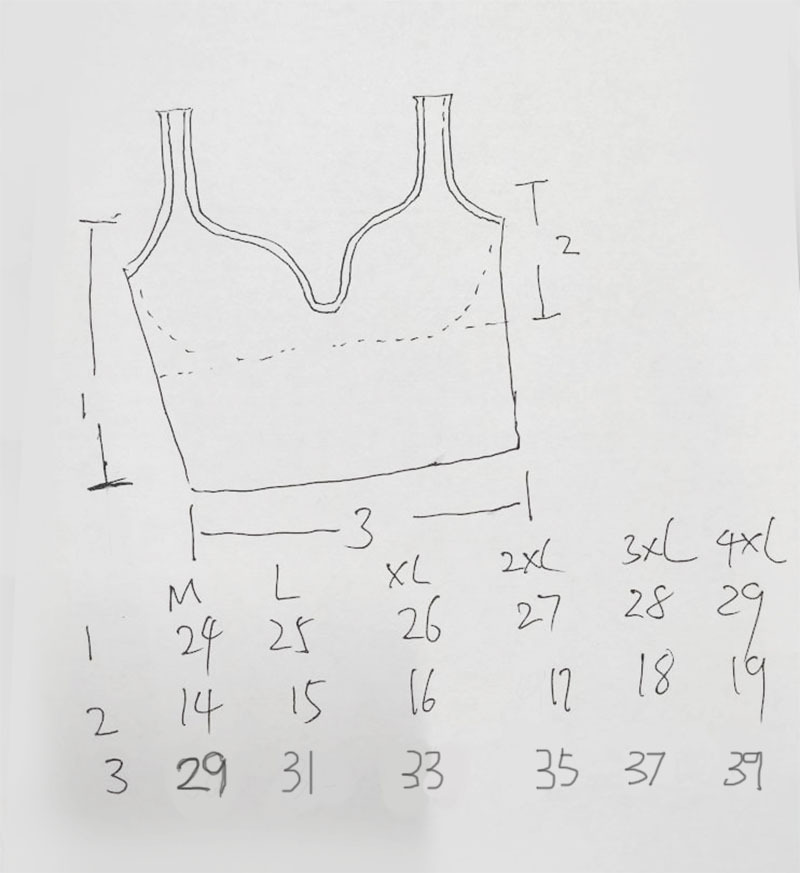 2
1
3
M L XL 2XL 3XL 4XL
1 24 25 26 27 28 29
2 14 15 16 17 18 19
3 29 31 33 35 37 39